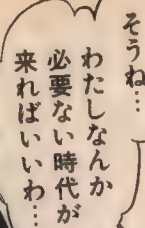 そうね…
わたしなんか
必要ない時代が
来ればいいわ…